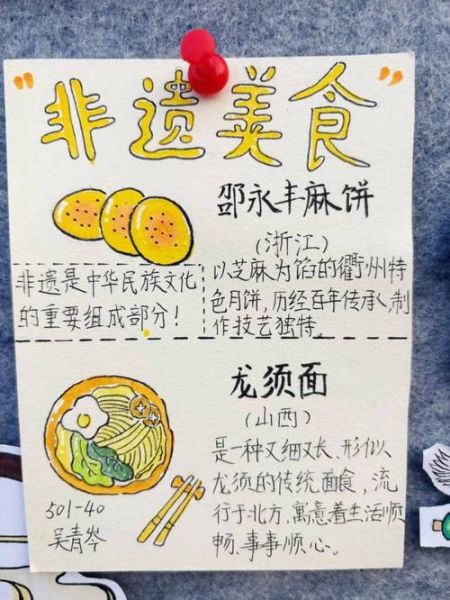 "非遗美食"
邵永丰麻饼
(浙江)
以芝麻为馅的衢州特
色月饼,历经百年传承,制
作技艺独特。
非遗是中华民族文化
的重要组成部分!
龙须面
(山西)
是一种又细又长、形似
龙须的传统面食,流
行于北方,寓意着生活顺
畅、事事顺心。
501-40
吴青岑